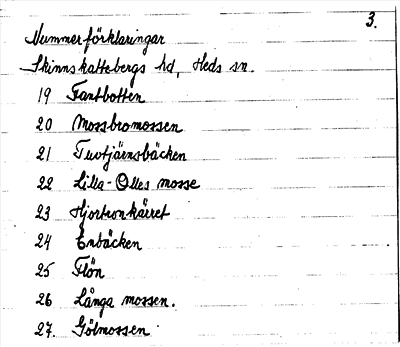 3.
Nummerförklaringar
Skinnskattebergs hd, Heds sn.
19 Fantbotten
20 Mossbromossen
21 Tuvtjärnsbäcken
22 Lilla-Olles mosse
23 Hjortronkärret
24 Enbäcken
25 Flön
26 Långa mossen.
27. Gölmossen